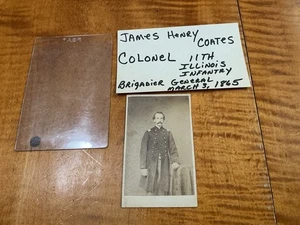 James Henry
Coates
Colonel 11TH
Illinois
Infantry
Brigadier General
March 3, 1865